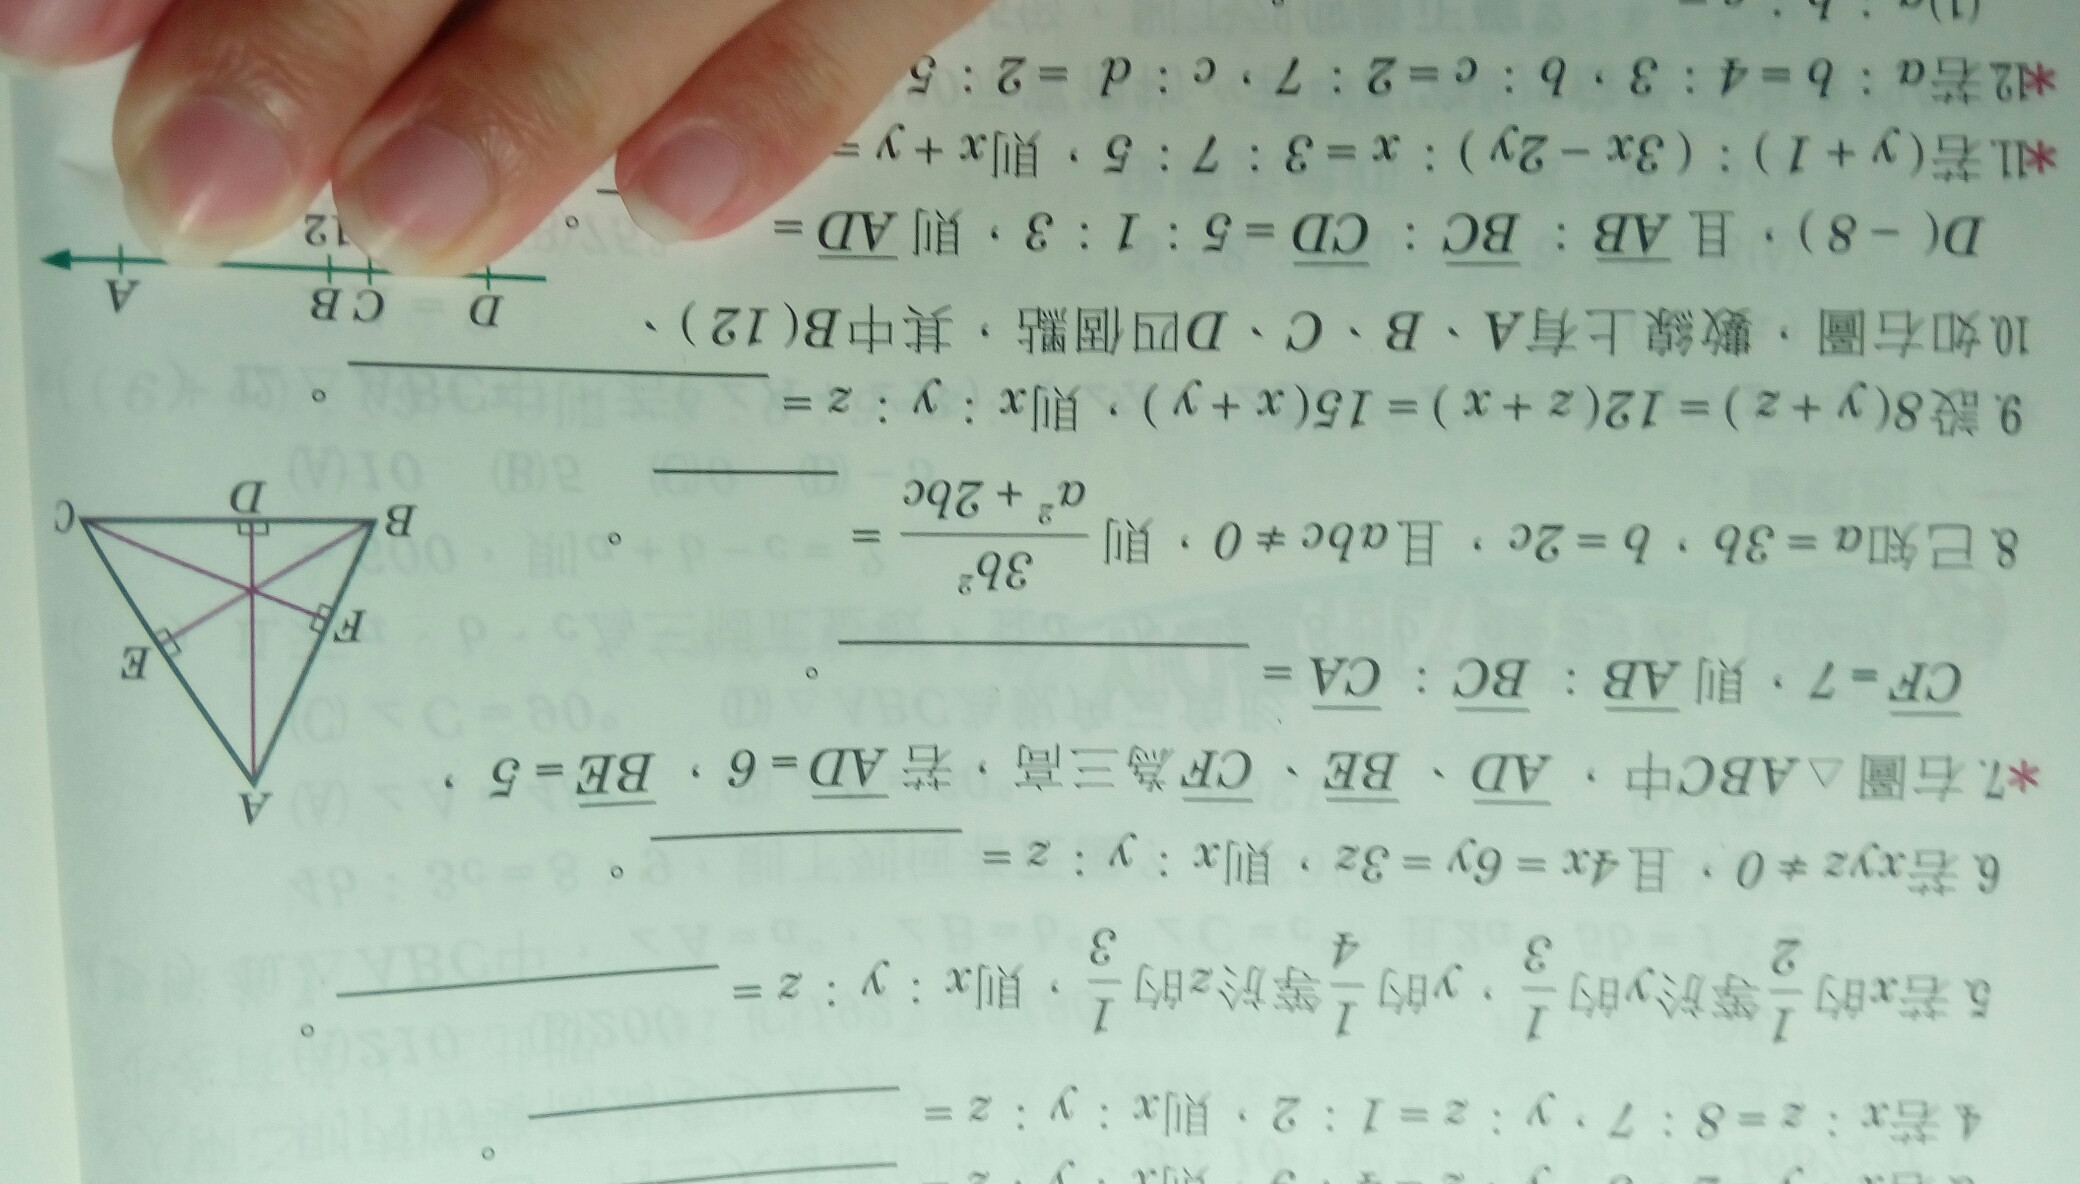 4. 若x：z＝8：7，y：z＝1：2，則x：y：z＝＿＿＿＿。
5. 若x的1/2等於y的1/3，y的1/4等於z的1/3，則x：y：z＝＿＿＿＿。
6. 若xyz≠0，且4x＝6y＝3z，則x：y：z＝＿＿＿＿。
*7. 右圖△ABC中，AD、BE、CF為三高，若AD＝6，BE＝5，
CF＝7，則AB：BC：CA＝＿＿＿＿。
A
F
E
B
D
C
8. 已知a＝3b，b＝2c，且abc≠0，則3b²/(a²＋2bc)＝＿＿＿＿。
9. 設8(y＋z)＝12(z＋x)＝15(x＋y)，則x：y：z＝＿＿＿＿。
10. 如右圖，數線上有A、B、C、D四個點，其中B(12)、
D(－8)，且AB：BC：CD＝5：1：3，則AD＝
。
D
C
B
A
12
*11. 若(y＋1)：(3x－2y)：x＝3：7：5，則x＋y＝
*12. 若a：b＝4：3，b：c＝2：7，c：d＝2：5